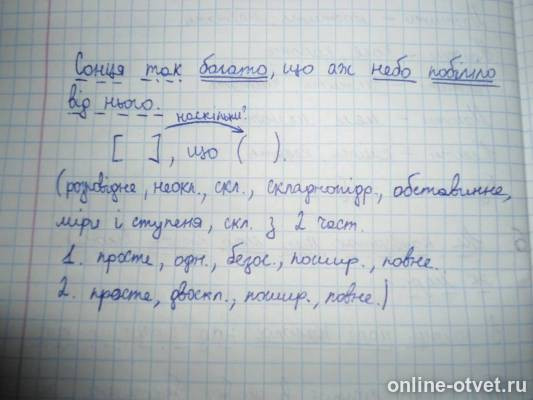 Сонця так багато, що аж небо побіліло
від нього.
наскільки?
[ ], що ( ).
(розповідне, неокл., скл., складнопідр., обставинне,
міри і ступеня, скл. з 2 част.
1. просте, одн., безос., пошир., повне.
2. просте, двоскл., пошир., повне.)
online-otvet.ru